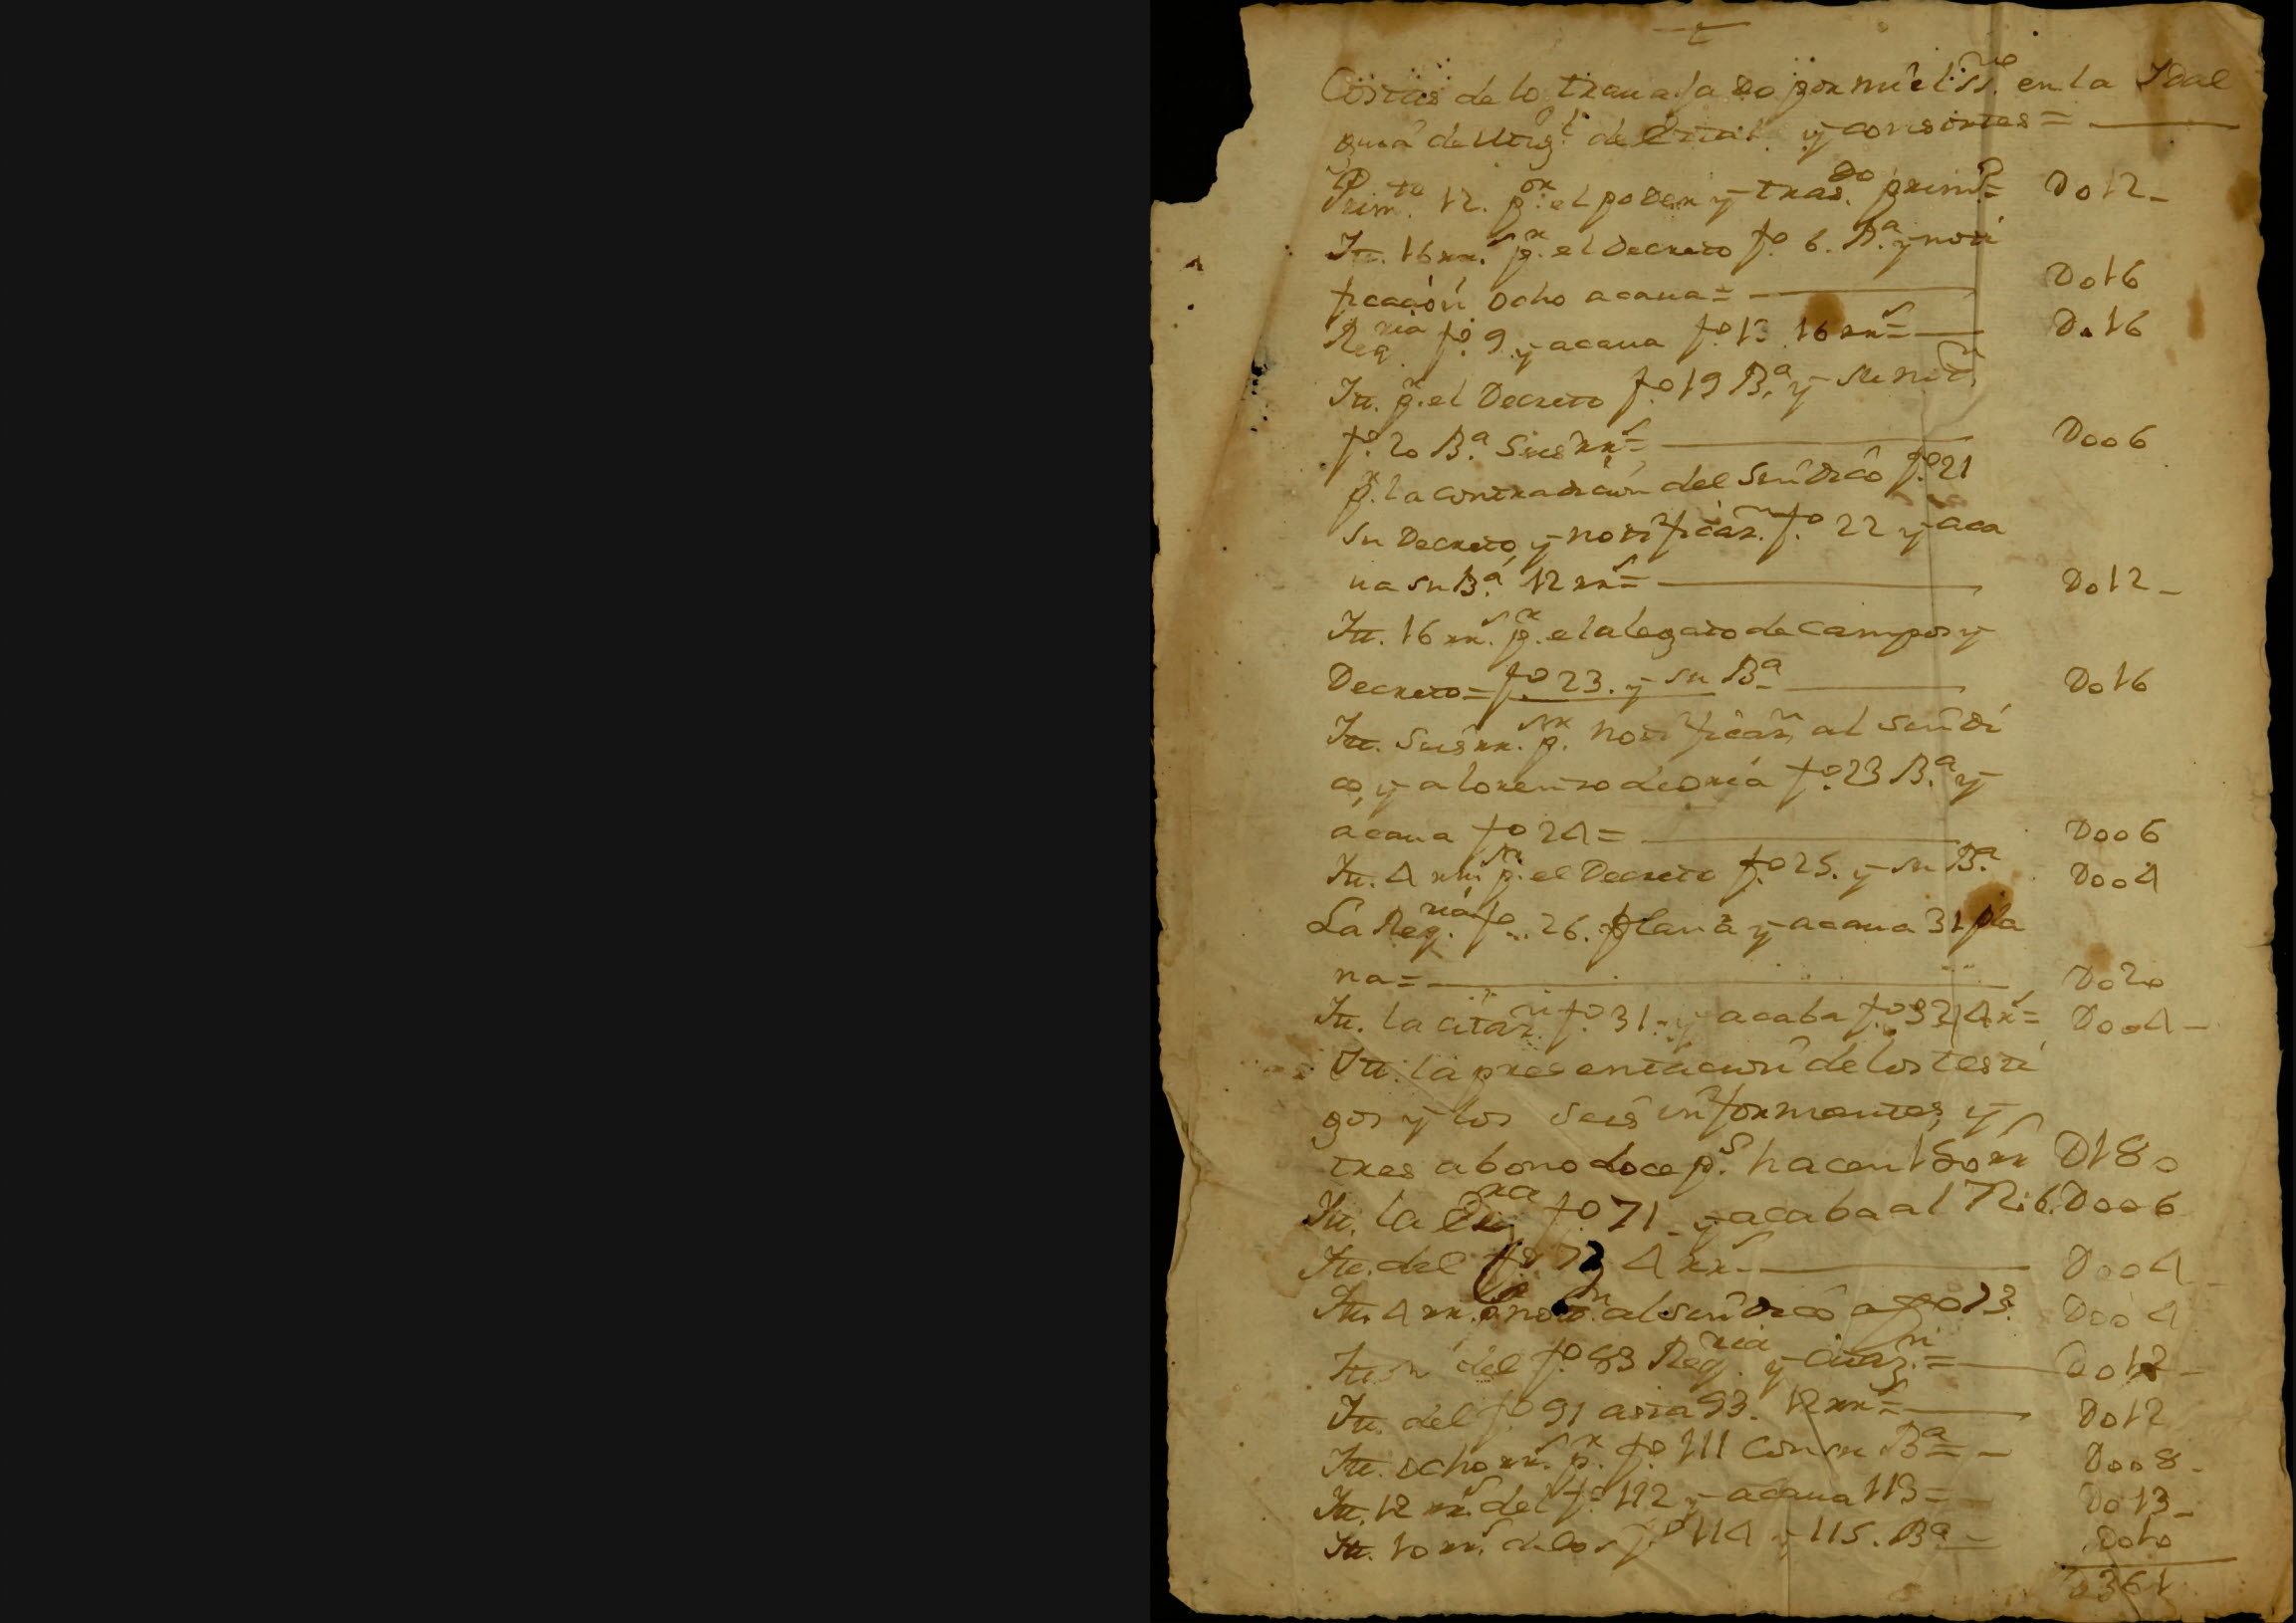 Costas de lo trauajado por mi el ss.no en la Idal
guia de Mig.l de y consortes =
Prim.to 12. p.or el poder y tras.do prim.o = D012_
Itt. 16 rr.s p.r el Decreto f.o 6. B.ta y noti
ficación ocho acaua = D016
Req.ria f.o 9 y acaua f.o 13 16 rr.s = D016
Itt. p.r el Decreto f.o 19 B.a y su not.n
f.o 20 B.a seis rr.s = D006
p.r la contradicion del sindico f.o 21
su Decreto, y notificaz.n f.o 22 y aca
ua su B.a 12 rr.s = D012_
Itt. 16 rr.s p.r el alegato de campos y
Decreto = f.o 23. y su B.a D016
Itt. seis rr.s p.r notificaz.n al sindi
co, y a lorenzo de oria f.o 23 B.a y
acaua f.o 24 = D006
Itt. 4 rr.s p.r el Decreto f.o 25. y su B.a D004
La Req.ria f.o 26. plana y acaua 31 pla
na = D020
Itt. la citaz.n f.o 31. y acaba f.o 32 4 r.s = D004_
Itt. la presentacion de los testi
gos y los seis informantes, y
tres abono doce p.s hacen 180 rr D180
Itt. la f.o 71 y acaba al 72. 6. D006
Itt. del f.o 72 4 rr.s D004_
Itt. 4 rr.s not.n al sindico a f.o 73. D004
Itt. del f.o 83 Req.ria y citaz.n = D012_
Itt. del f.o 91 asta 93. 12 rr.s = D012
Itt. ocho rr.s p.r f.o 111 con su B.a = D008_
Itt. 12 rr.s del f.o 112 y acaua 113 = D013_
Itt. 10 rr.s de los f.o 114 y 115. B.a D010
D361